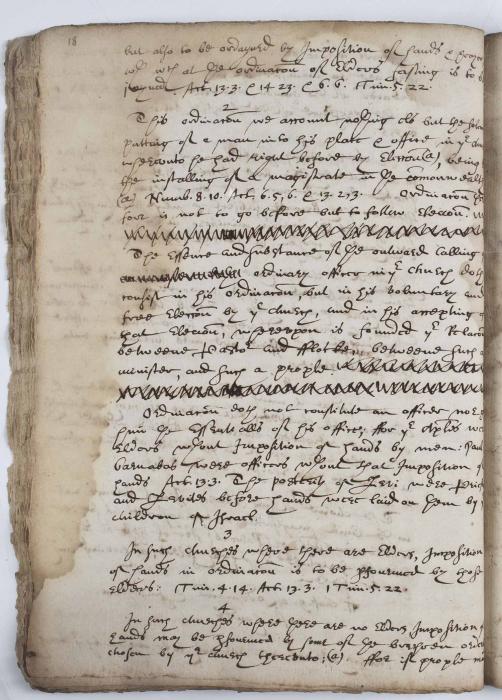 18
but also to be ordayned by Imposition of hands & prayer
wth wch at ye ordinacon of Elders fasting is to b
joyned. Act. 13.3. & 14 23. & 6. 6. 1 Tim. 5. 22.
2
This ordinacon we account nothing els but the solem
putting of a man into his place & office in ye ch
whereunto he had right before by Election, being
the installing of a magistrate in ye comonwealt
(a) Numb. 8. 10. Act. 6. 5, 6. & 13. 2,3. Ordinacon
fore is not to go before but to follow Eleccon.
The Essence and substance of ye outward calling
ordinary officer in ye church doth
consist in his ordinacon, but in his voluntary and
free Eleccon by ye church, and in his accepting
that Eleccon, whereupon is founded ye Relacon
betweene Pastor and fflocke, betweene such a
minister, and such a people.
Ordinacon doth not constitute an officer nor g
him ye Essentialls of his office, ffor ye Aples we
Elders without Imposition of hands by men: Pau
Barnabas were officers without that Imposition
hands Act. 13. 3. The posterity of Levi were Prie
and Levites before hands were laid on them by
children of Israel.
3
In such churches where there are Elders, Imposition
of hands in ordinacon is to be pformed by those
Elders: 1 Tim. 4. 14. Act. 13. 3. 1 Tim. 5. 22.
4
In such churches where there are no Elders Imposition
hands may be pformed by some of the brethren order
chosen by ye church thereunto; (a). ffor if people m